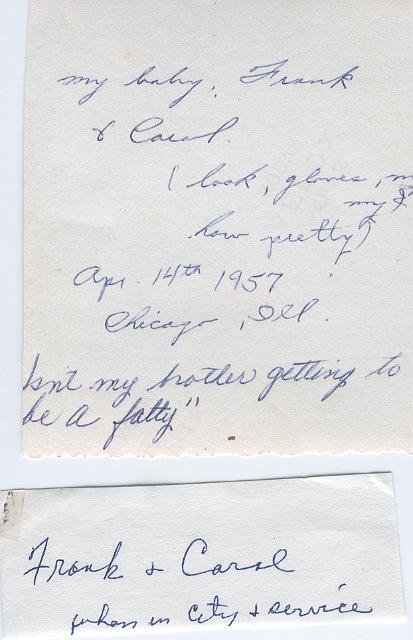 my baby, Frank
& Carol.
( look, gloves, m
my
how pretty)
Apr. 14th 1957
Chicago, Ill.
Isnt my brother getting to
be a fatty"
Frank & Carol
in City & service